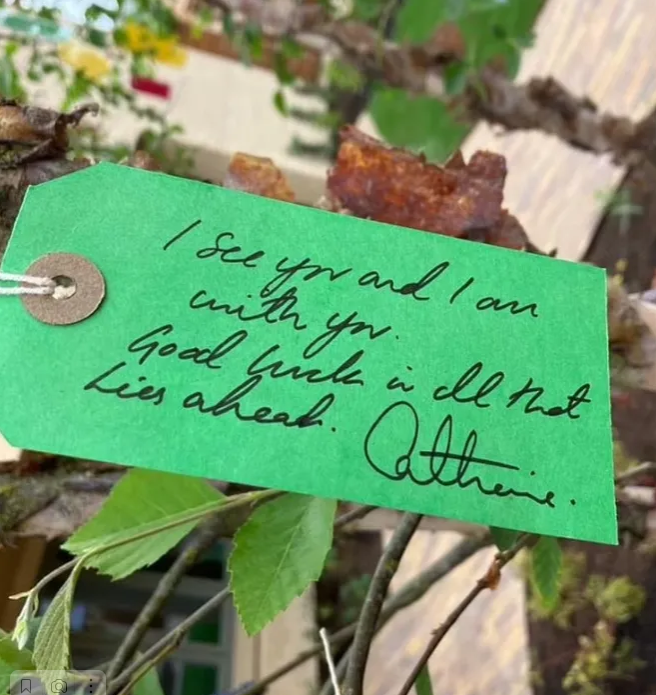 I see you and I am
with you.
Good luck in all that
lies ahead.
Catherine.